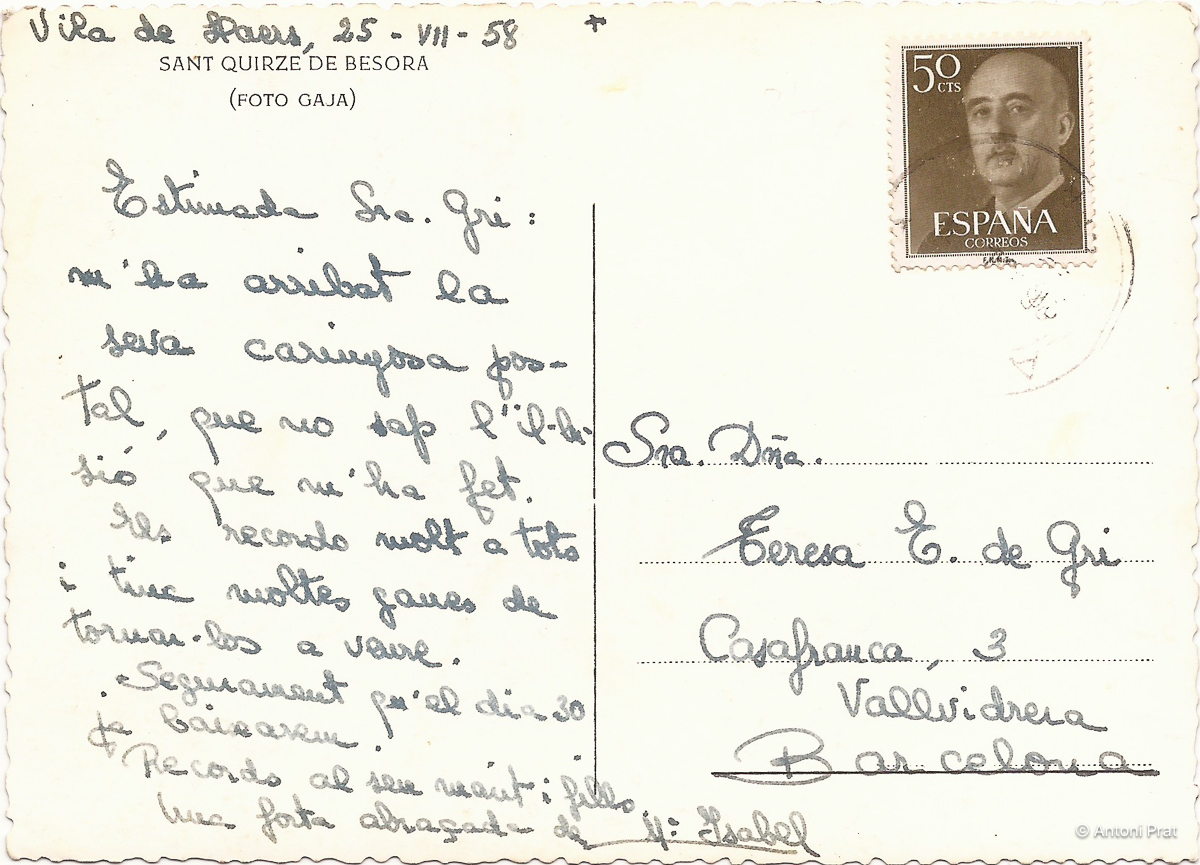 Vila de Haers, 25 - VII - 58
SANT QUIRZE DE BESORA
(FOTO GAJA)
Estimada Sra. Gri:
m'ha arribat la
seva caringosa pos-
tal, que no sap l'il-lu-
sió que m'ha fet.
Els recordo molt a tots
i tinc moltes ganes de
tornar-los a veure.
Segurament qu'el dia 30
ja baixarem.
Records al seu marit i fills
Una forta abraçada de Mª Isabel
50
CTS
ESPAÑA
CORREOS
F.N.M.T.
Sra. Dña.
Teresa E. de Gri
Casafranca, 3
Vallvidrera
Barcelona
© Antoni Prat